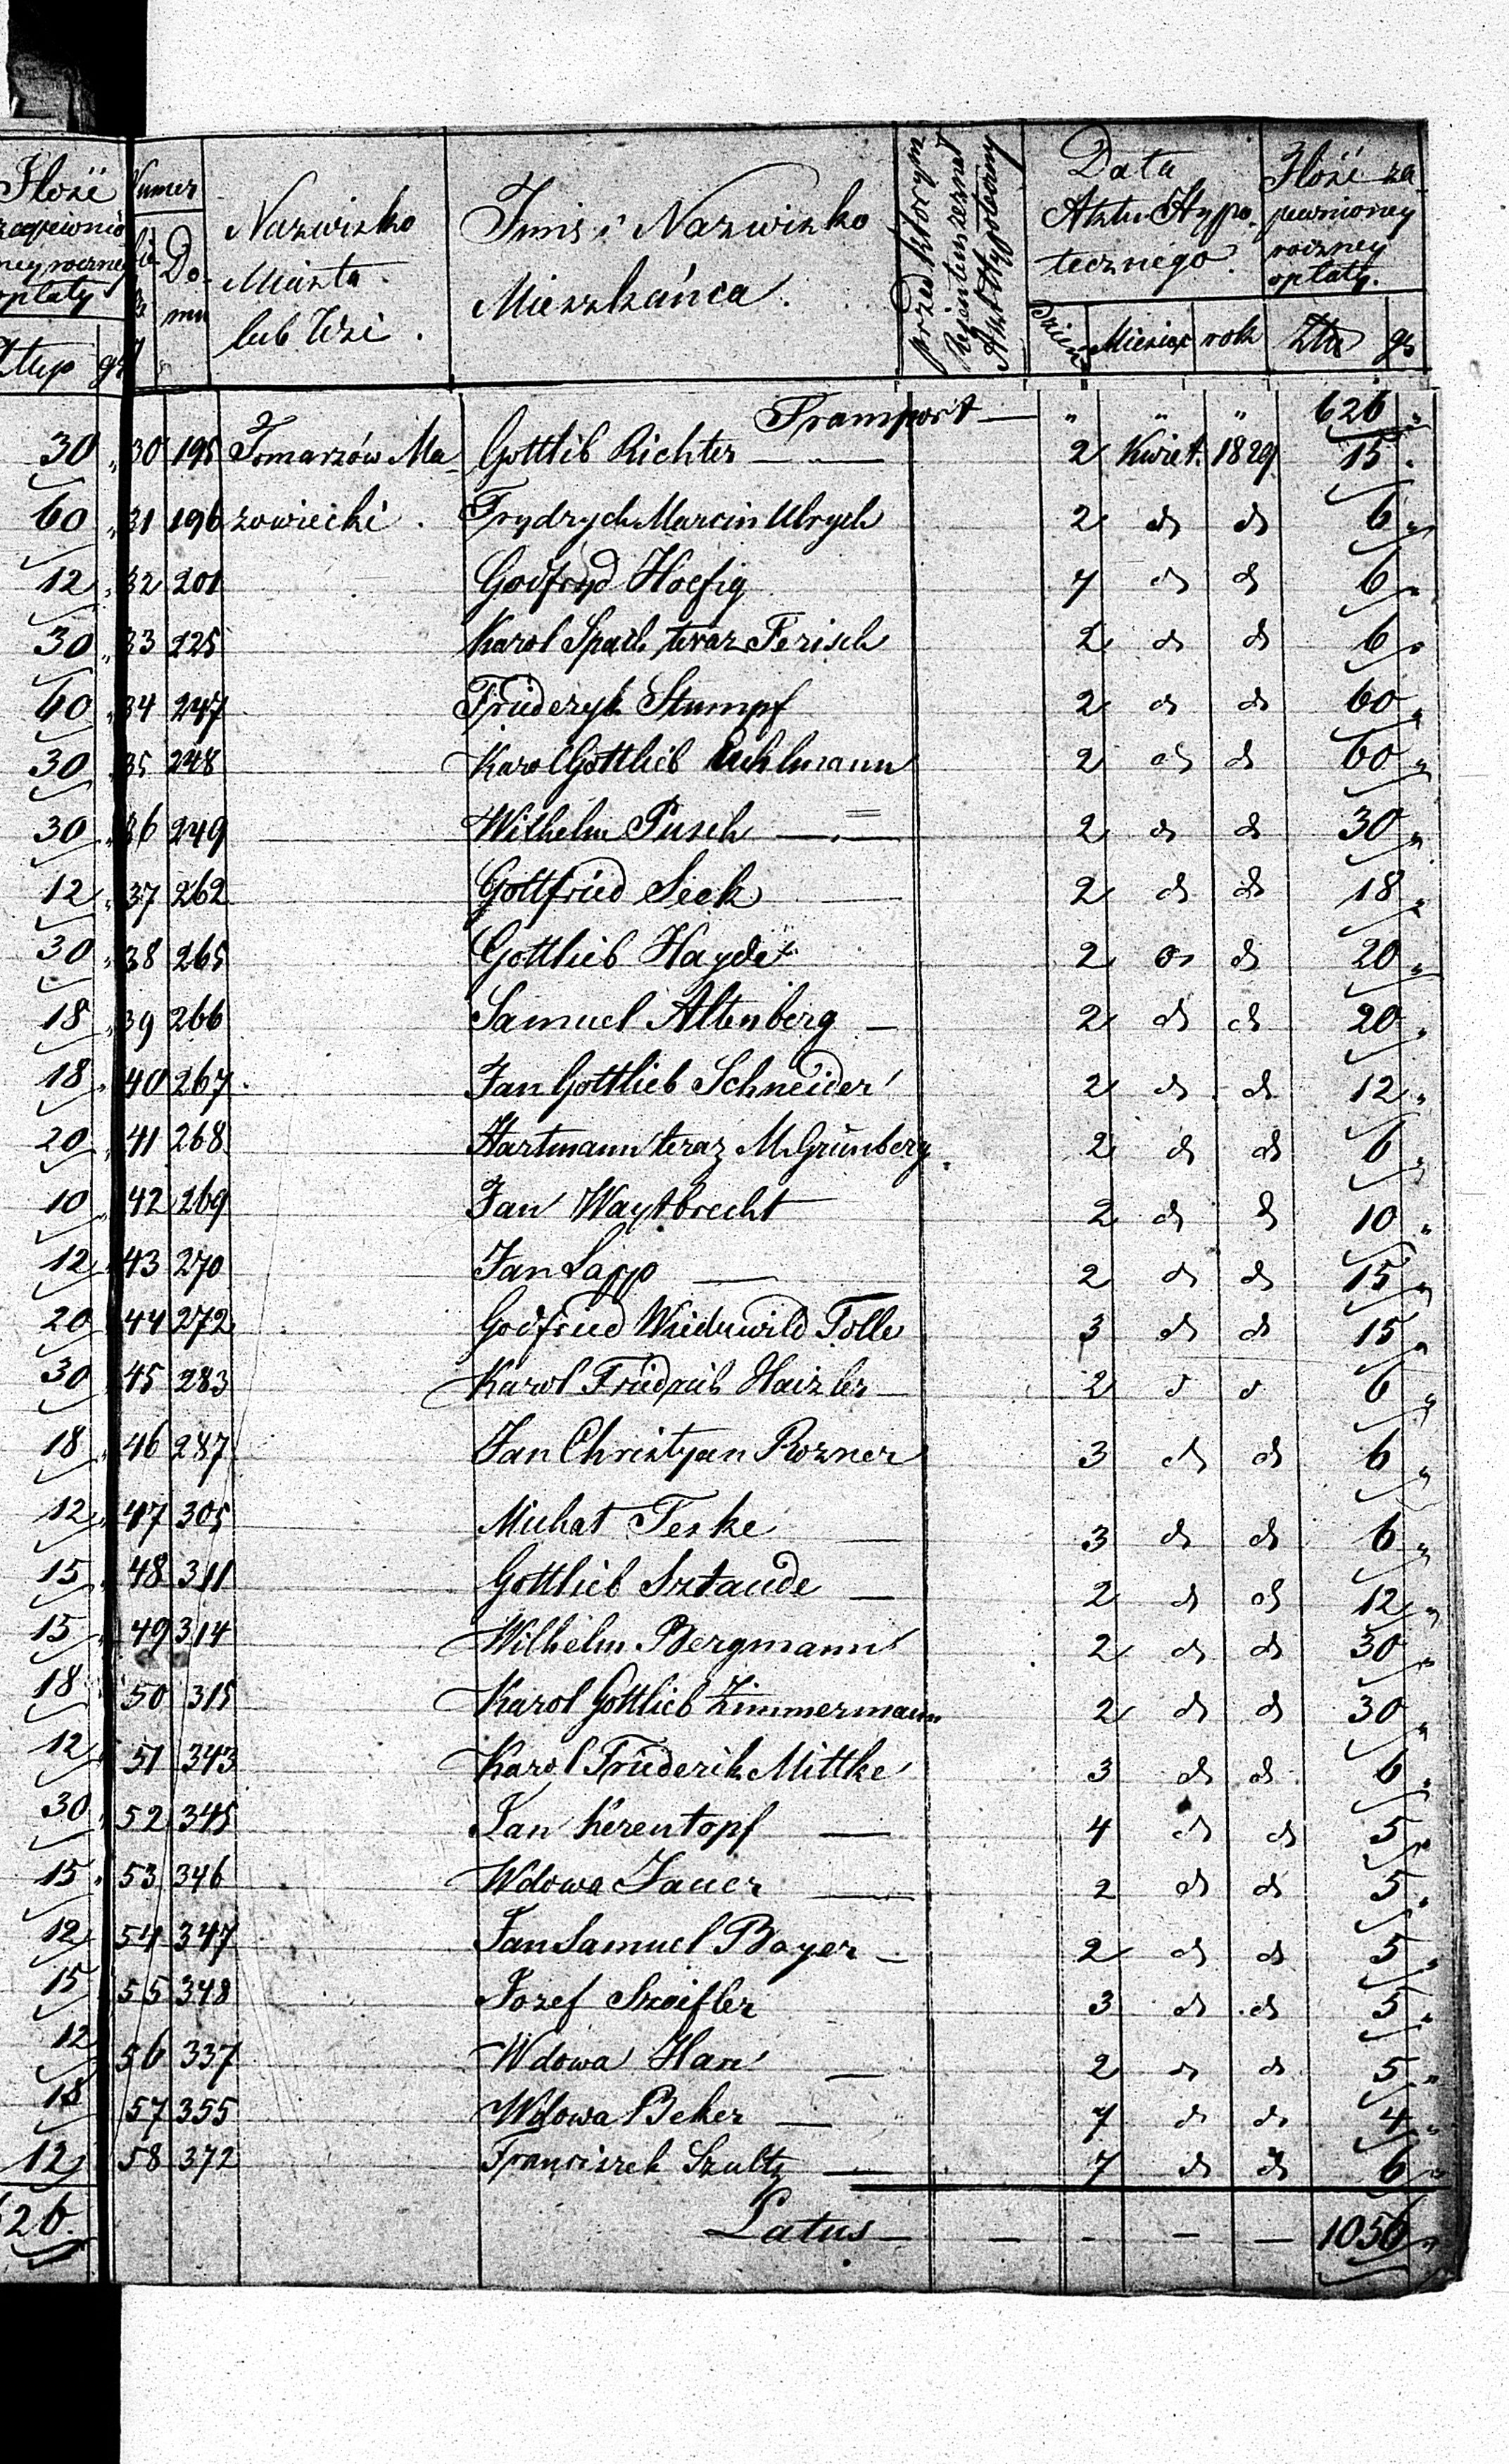 Ilość
zapewnio
ney roczney
opłaty
Złtp gr
Numer
Do-
mu
Nazwisko
Miasta
lub Wsi.
Imie i Nazwisko
Mieszkańca.
przed którym
Rejentem zeznał
Akt Hypoteczny
Data
Aktu Hypo-
tecznego.
Dzień Miesiąc rok
Ilość za-
pewnioney
roczney
opłaty.
Złte gr
Transport — " " " 626 "
30 " 30 195 Tomarzów Ma- Gottlib Richter — 2 Kwiet. 1829 15 "
60 " 31 196 zowiecki. Frydrych Marcin Ulrych 2 d d 6 "
12 " 32 201 Godfryd Hoefig 7 d d 6 "
30 " 33 225 Karol Spaeth teraz Ferisch 2 d d 6 "
60 " 34 247 Friederyk Stumpf 2 d d 60 "
30 " 35 248 Karol Gottlieb Ruhlmann 2 d d 60 "
30 " 36 249 Wilhelm Pusch — 2 d d 30 "
12 " 37 262 Gottfried Seek 2 d d 18 "
30 " 38 265 Gottlieb Hayde 2 d d 20 "
18 " 39 266 Samuel Altenberg — 2 d d 20 "
18 " 40 267 Jan Gottlieb Schneider 2 d d 12 "
20 " 41 268 Hartmann teraz M. Grünberg. 2 d d 6 "
10 " 42 269 Jan Waytbrecht 2 d d 10 "
12 " 43 270 Jan Lapp — 2 d d 15 "
20 " 44 272 Godfried Wieduwild Tolle 3 d d 15 "
30 " 45 283 Karol Haizler — 2 d d 6 "
18 " 46 287 Jan Christyan Rozner 3 d d 6 "
12 " 47 305 Michał Teske — 3 d d 6 "
15 " 48 311 Gottlieb Sztaude — 2 d d 12 "
15 " 49 314 Wilhelm Bergmann 2 d d 30 "
18 " 50 315 Karol Gottlieb Zimmermann 2 d d 30 "
12 " 51 343 Karol Friederik Mittke 3 d d 6 "
30 " 52 345 Jan Kerentopf — 4 d d 5 "
15 " 53 346 Wdowa Jauer — 2 d d 5 "
12 " 54 347 Jan Samuel Bayer — 2 d d 5 "
15 " 55 348 Jozef Szoifler 3 d d 5 "
12 56 337 Wdowa Han — 2 d d 5 "
18 57 355 Wdowa Beker — 7 d d 4 "
12 58 372 Franciszek Szultz — 7 d d 6 "
626. Latus — — - — — 1056 "